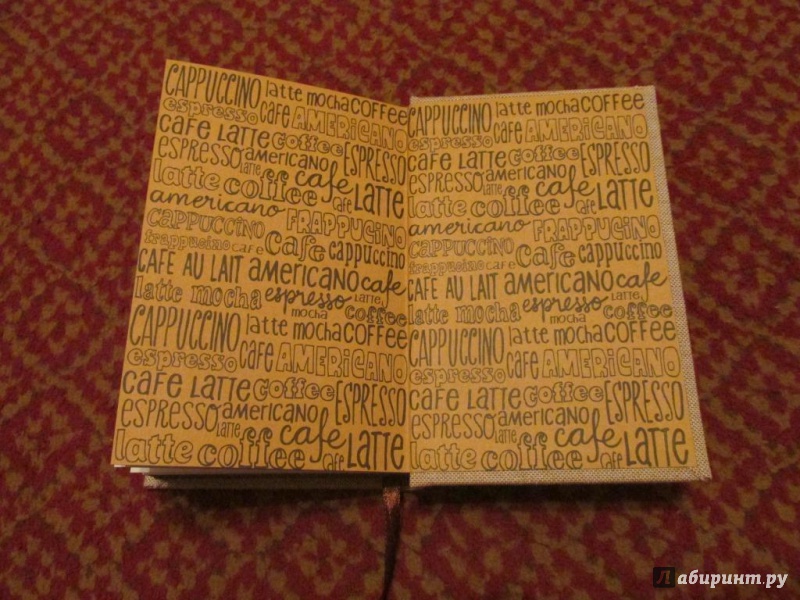 CAPPUCCINO latte mocha COFFEE
espresso cafe AMERICANO
CAFE LATTE coffee ESPRESSO
ESPRESSO americano
latte
latte coffee cafe LATTE
cafe
americano FRAPPUCINO
CAPPUCCINO
frappucino CAFE Cafe cappuccino
CAFE AU LAIT americano cafe
latte mocha espresso LATTE
mocha coffee
CAPPUCCINO latte mocha COFFEE
espresso CAFE AMERICANO
CAFE LATTE coffee ESPRESSO
ESPRESSO americano
LATTE
latte coffee cafe LATTE
cafe
CAPPUCCINO latte mocha COFFEE
espresso cafe AMERICANO
CAFE LATTE coffee ESPRESSO
ESPRESSO americano
latte
latte coffee cafe LATTE
cafe
americano FRAPPUCINO
CAPPUCCINO
frappucino CAFE Cafe cappuccino
CAFE AU LAIT americano cafe
latte mocha espresso LATTE
mocha coffee
CAPPUCCINO latte mocha COFFEE
espresso CAFE AMERICANO
CAFE LATTE coffee ESPRESSO
ESPRESSO americano
LATTE
latte coffee cafe LATTE
cafe
Лабиринт.ру